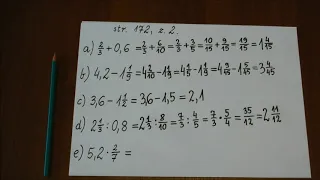 str. 172, z. 2.
a) 2/3 + 0,6 = 2/3 + 6/10 = 2/3 + 3/5 = 10/15 + 9/15 = 19/15 = 1 4/15
b) 4,2 - 1 1/9 = 4 2/10 - 1 1/9 = 4 1/5 - 1 1/9 = 4 9/45 - 1 5/45 = 3 4/45
c) 3,6 - 1 1/2 = 3,6 - 1,5 = 2,1
d) 2 1/3 : 0,8 = 2 1/3 : 8/10 = 7/3 : 4/5 = 7/3 · 5/4 = 35/12 = 2 11/12
e) 5,2 · 2/7 =